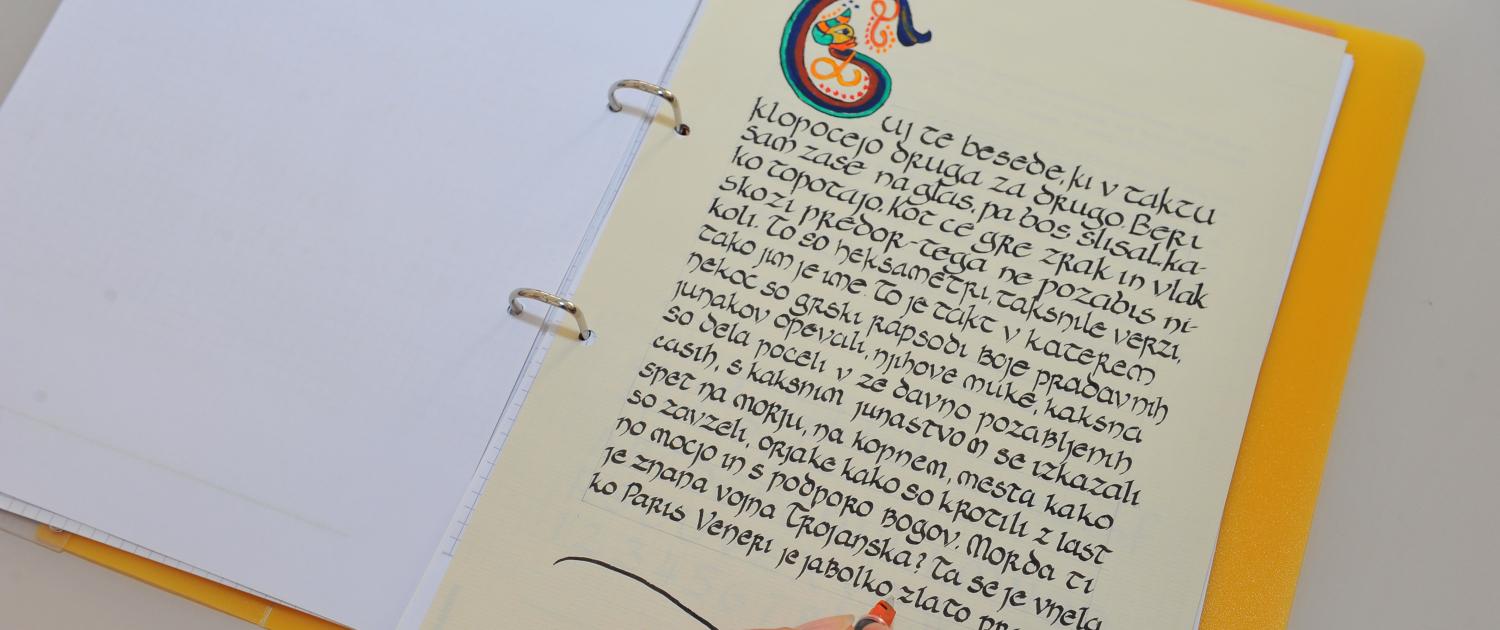 Cuj te besede, ki v taktu
klopocejo druga za drugo. Beri
sam zase na glas, pa bos slisal, ka-
ko topotajo. Kot ce gre zrak in vlak
skozi predor-tega ne pozabis ni-
koli. To so heksametri, taksnile verzi,
tako jim je ime. To je takt v katerem
nekoc so grski rapsodi boje pradavnih
junakov opevali, njihove muke, kaksna
so dela poceli v ze davno pozabljenih
casih, s kaksnim junastvom se izkazali
spet na morju, na kopnem, mesta kako
so zavzeli, orjake kako so krotili z last
no mocjo in s podporo bogov. Morda ti
je znana vojna Trojanska? Ta se je vnela
ko Paris Veneri je jabolko zlato